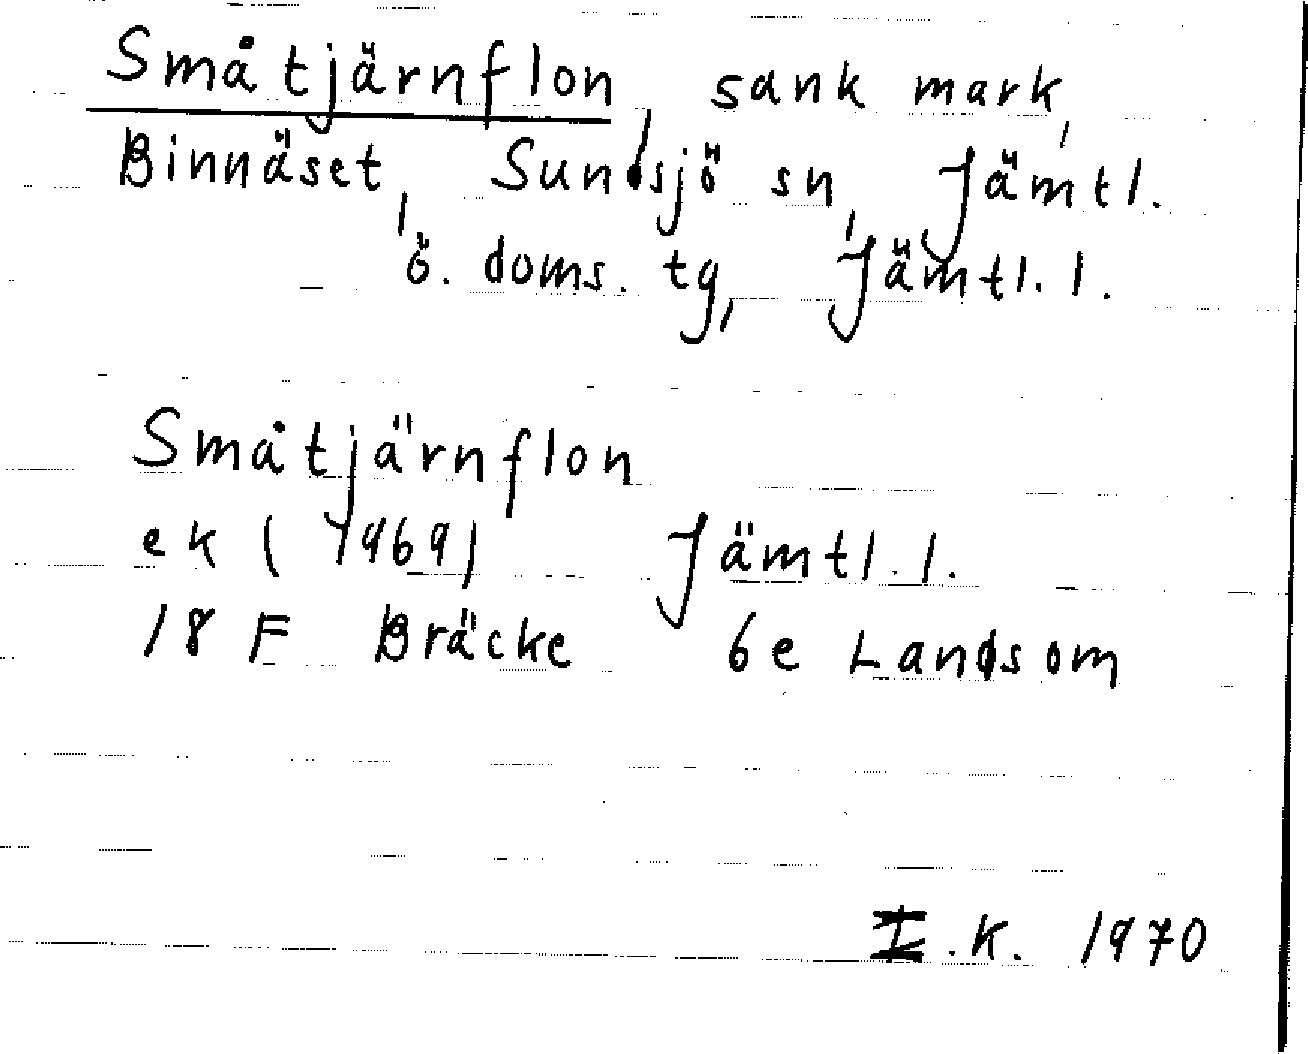 Småtjärnflon, sank mark,
Binnäset, Sundsjö sn, Jämtl.
ö. doms. tg, Jämtl. l.
Småtjärnflon
ek (1969) Jämtl. l.
18 F Bräcke 6e Landsom
I.K. 1970